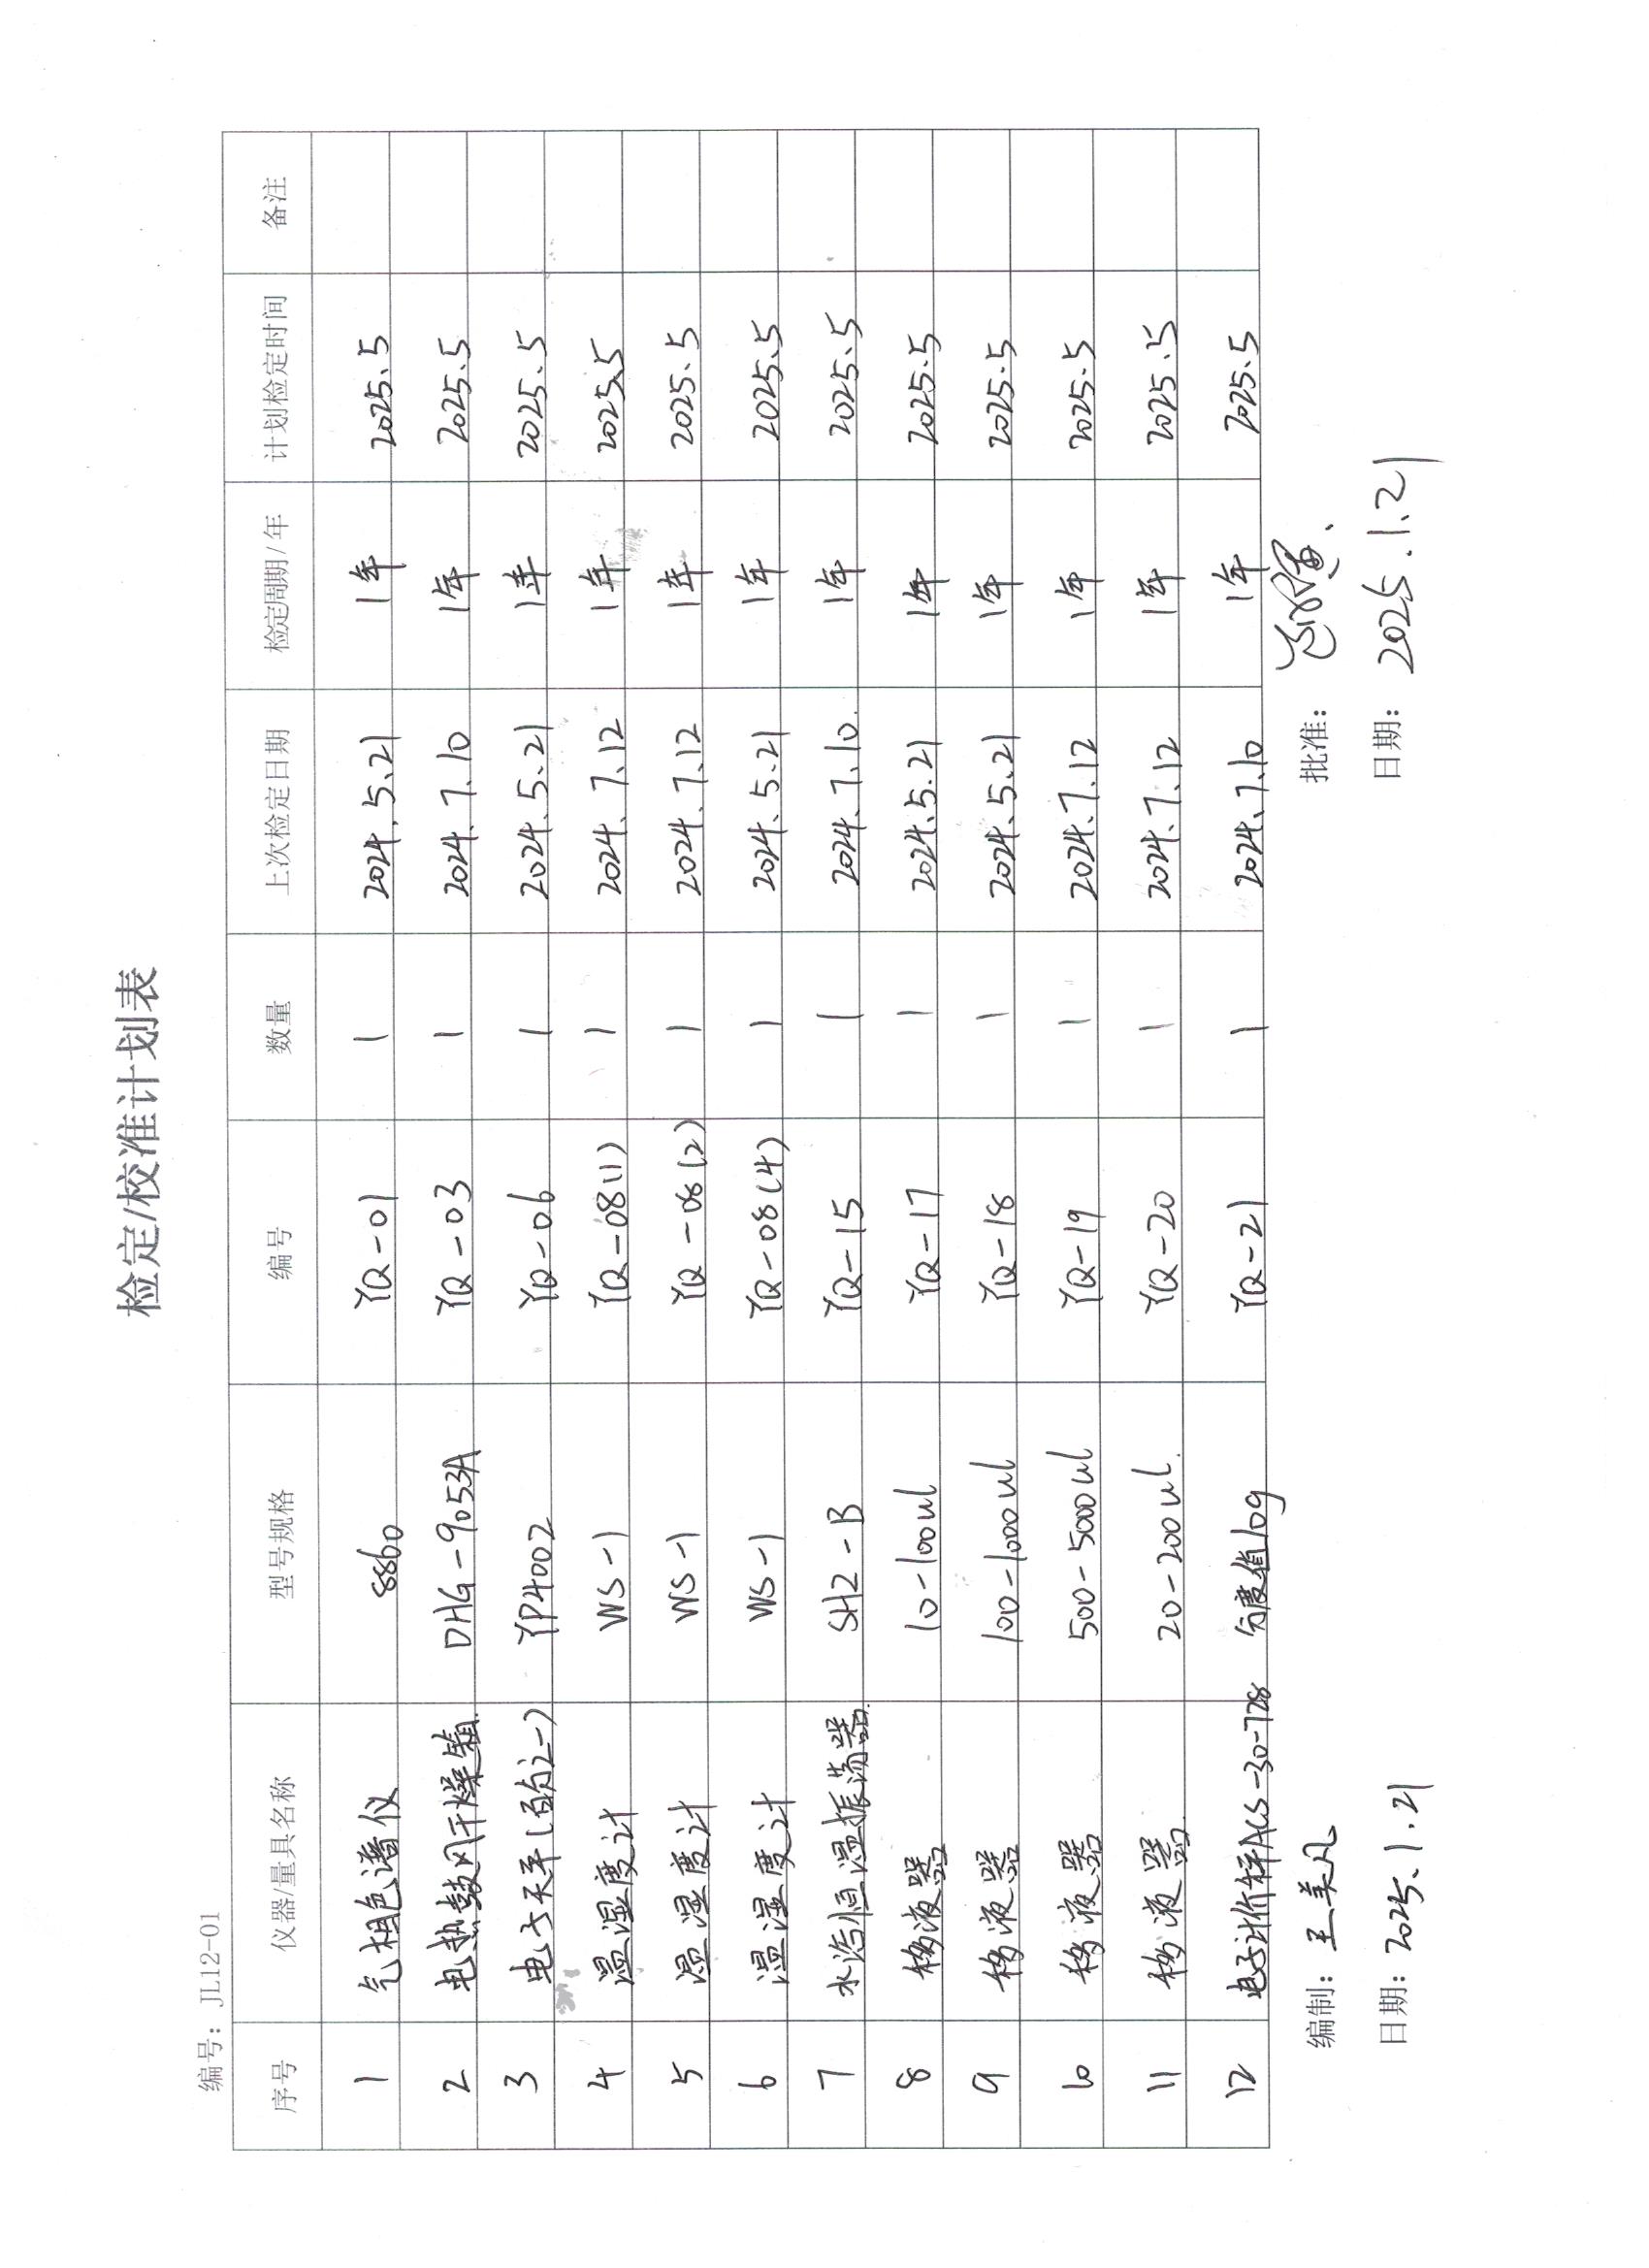 检定/校准计划表
编号：JL12-01
序号 仪器/量具名称 型号规格 编号 数量 上次检定日期 检定周期/年 计划检定时间 备注
1 气相色谱仪 8860 YQ-01 1 2024.5.21 1年 2025.5
2 电热鼓风干燥箱 DHG-9053A YQ-03 1 2024.7.10 1年 2025.5
3 电子天平(百分之一) YP4002 YQ-06 1 2024.5.21 1年 2025.5
4 温湿度计 WS-1 YQ-08(1) 1 2024.7.12 1年 2025.5
5 温湿度计 WS-1 YQ-08(2) 1 2024.7.12 1年 2025.5
6 温湿度计 WS-1 YQ-08(4) 1 2024.5.21 1年 2025.5
7 水浴恒温振荡器 SHZ-B YQ-15 1 2024.7.10. 1年 2025.5
8 移液器 10-100ul YQ-17 1 2024.5.21 1年 2025.5
9 移液器 100-1000ul YQ-18 1 2024.5.21 1年 2025.5
10 移液器 500-5000ul YQ-19 1 2024.7.12 1年 2025.5
11 移液器 20-200ul. YQ-20 1 2024.7.12 1年 2025.5
12 电子计价秤ACS-30-728 分度值10g YQ-21 1 2024.7.10 1年 2025.5
编制：王美凡 批准：
日期：2025.1.21 日期：2025.1.21